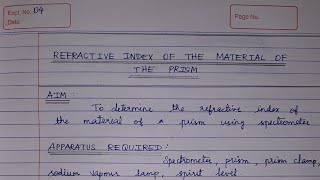 Expt. No. 04
Date
Page No.
REFRACTIVE INDEX OF THE MATERIAL OF
THE PRISM
AIM :
To determine the refractive index of
the material of a prism using spectrometer
APPARATUS REQUIRED :
Spectrometer, prism, prism clamp,
sodium vapour lamp, spirit level